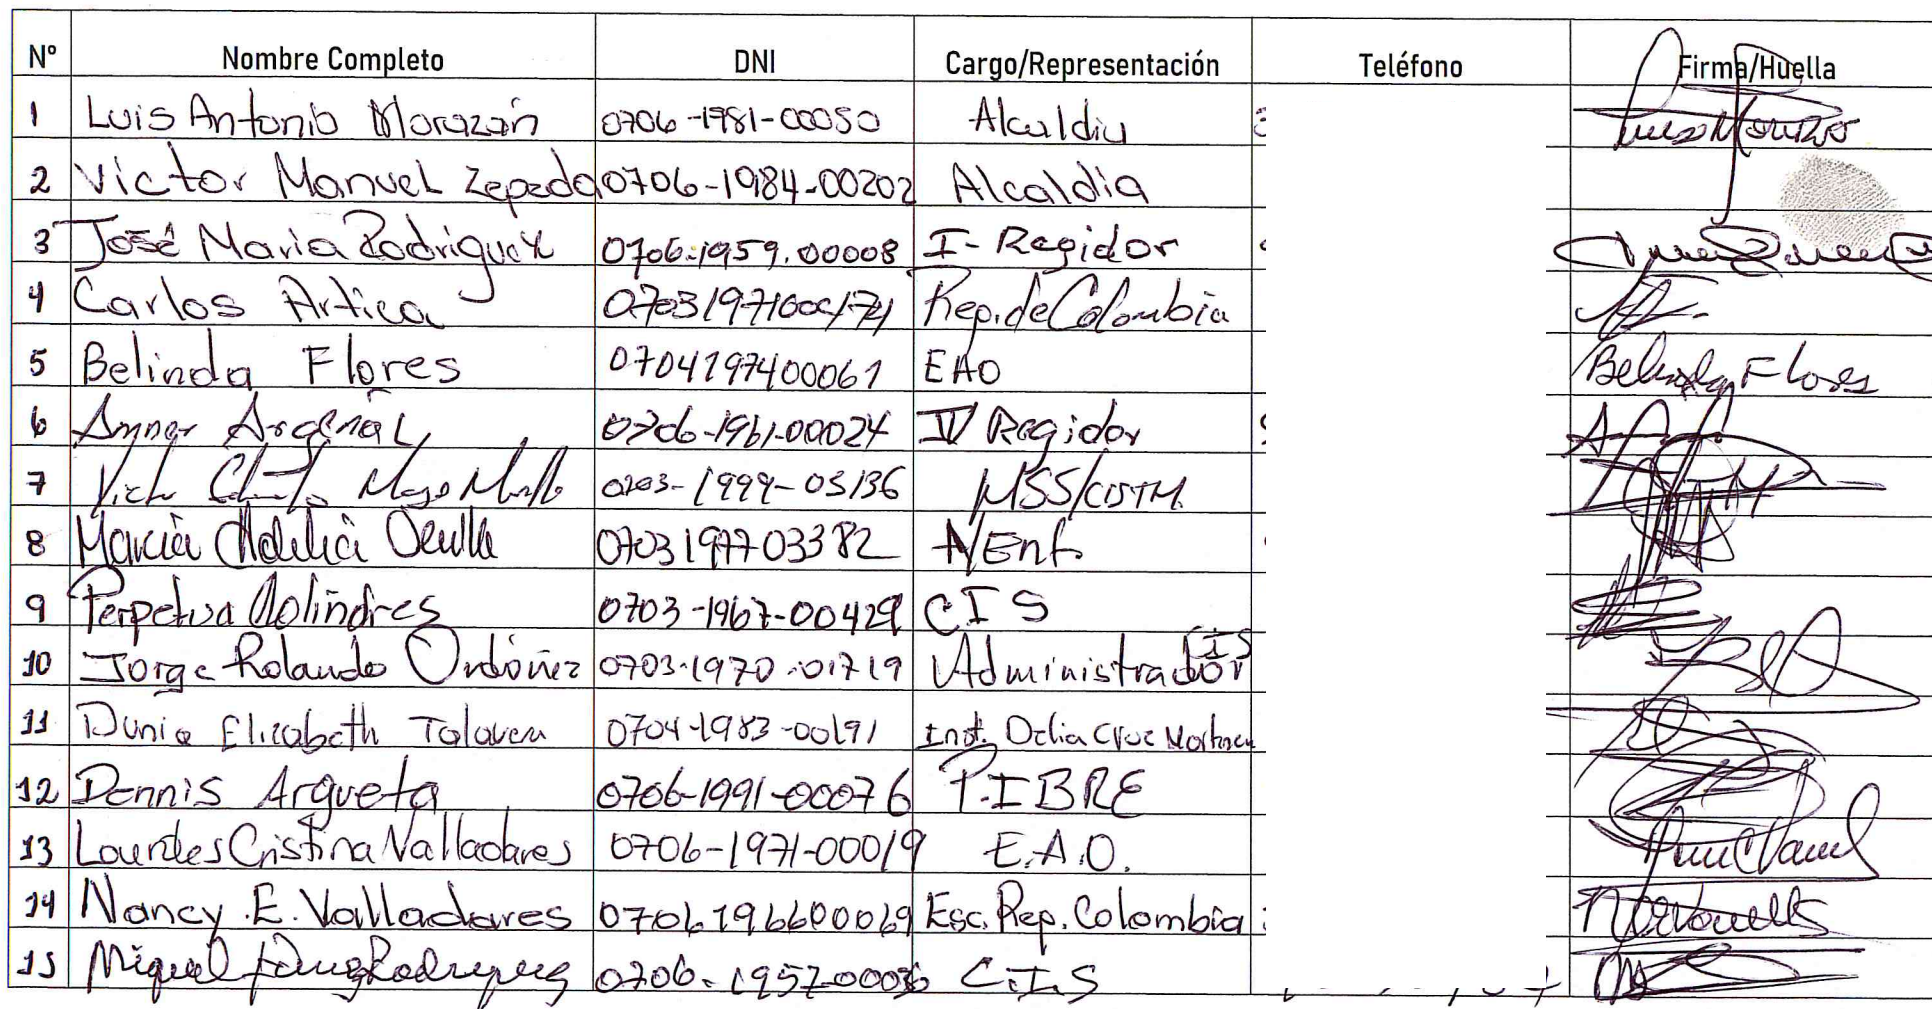 N° Nombre Completo DNI Cargo/Representación Teléfono Firma/Huella
1 Luis Antonio Morazán 0706-1981-00050 Alcaldia
2 Victor Manuel Zepeda 0706-1984-00202 Alcaldia
3 José Maria Rodriguez 0706-1959.00008 I-Regidor
4 Carlos Artica Rep. de Colombia
5 Belinda Flores 0704197400061 EAO Belinda Flores
6 0706-1961-00024 IV Regidor
7 1999-03136
8 0703197703382
9 Perpetua Molindres 0703-1967-00429 CIS
10 Jorge Rolando Ordóñez 0703-1970-01719 Administrador CIS
11 Dunia Elizabeth Talavera 0704-1983-00191 Inst. Delia Cruz
12 Dennis Argueta 0706-1991-00076
13 Lourdes Cristina Valladares 0706-1971-00019 E.A.O.
14 Nancy E. Valladares 0706196600069 Esc. Rep. Colombia
15 Miguel Rodriguez C.I.S